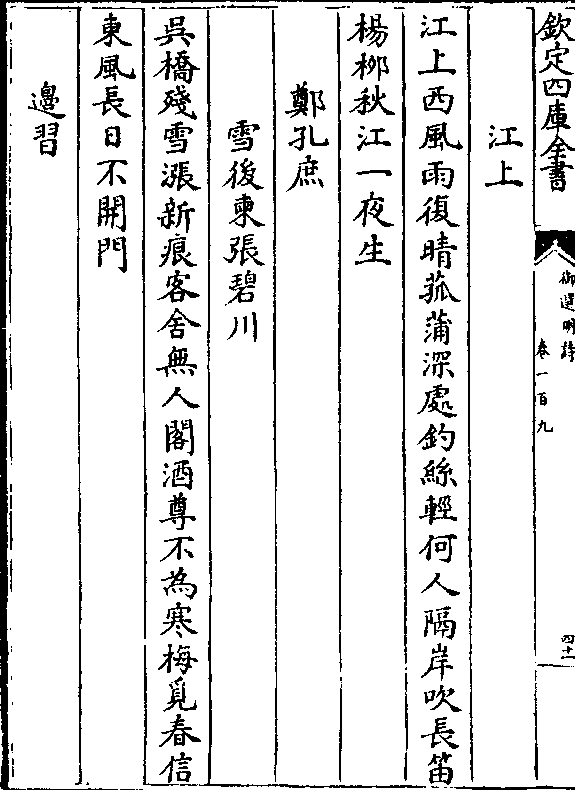 欽定四庫全書
御選明詩
卷一百九
四十一
江上
江上西風雨復晴菰蒲深處釣絲輕何人隔岸吹長笛
楊柳秋江一夜生
鄭孔庶
雪後柬張碧川
吳橋殘雪漲新痕客舍無人閣酒尊不為寒梅覓春信
東風長日不開門
邊習